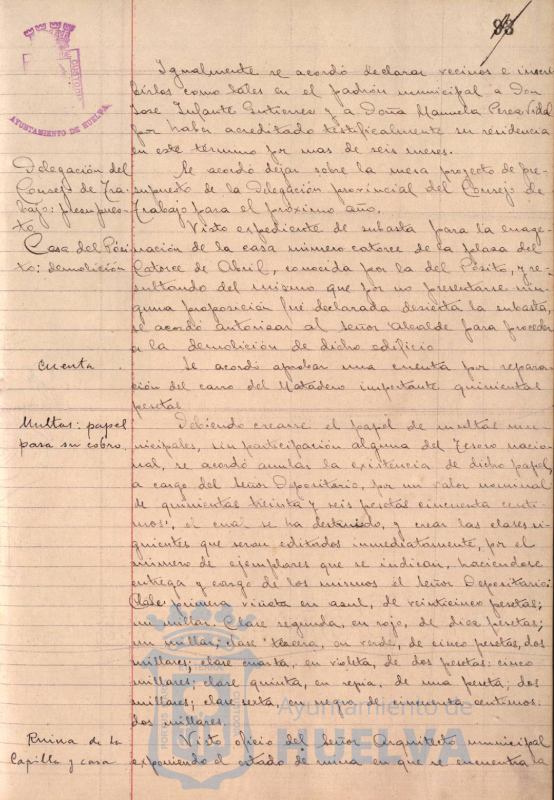 93
CUSTODIA
AYUNTAMIENTO DE HUELVA
Igualmente se acordó declarar vecinos e inscri-
birlos como tales en el padrón municipal a Don
Jose Infante Gutierrez y a Doña Manuela Perez Vidal
por haber acreditado testificalmente su residencia
en este término por mas de seis meses.
Delegación del
Consejo de Tra-
bajo: presupues-
to
Se acordó dejar sobre la mesa proyecto de pre-
supuesto de la Delegación provincial del Consejo de
Trabajo para el próximo año.
Casa del Pósi-
to: demolición
Visto expediente de subasta para la enage-
nación de la casa número catorce de la plaza del
Catorce de Abril, conocida por la del Pósito, y re-
sultando del mismo que por no presentarse nin-
guna proposición fué declarada desierta la subasta,
se acordó autorizar al señor Alcalde para proceder
a la demolición de dicho edificio
Cuenta
Se acordó aprobar una cuenta por repara-
ción del carro del Matadero importante quinientas
pesetas
Multas: papel
para su cobro.
Debiendo crearse el papel de multas mu-
nicipales, sin participación alguna del Tesoro nacio-
nal, se acordó anular la existencia de dicho papel,
a cargo del Señor Depositario, por un valor nominal
de quinientas treinta y seis pesetas cincuenta centi-
mos, el cual se ha destruido, y crear las clases si-
guientes que seran editados inmediatamente, por el
número de ejemplares que se indican, haciendose
entrega y cargo de los mismos el Señor Depositario:
Clase primera viñeta en azul, de veinticinco pesetas;
un millar. Clase segunda, en rojo, de diez pesetas;
un millar; clase tercera, en verde, de cinco pesetas, dos
millares; clase cuarta, en violeta, de dos pesetas: cinco
millares; clase quinta, en sepia, de una peseta; dos
millares; clase sexta, en negro, de cincuenta centimos:
dos millares.
Ruina de la
Capilla y casa
Visto oficio del Señor Arquitecto municipal
exponiendo el estado de ruina en que se encuentra la
Ayuntamiento de
HUELVA